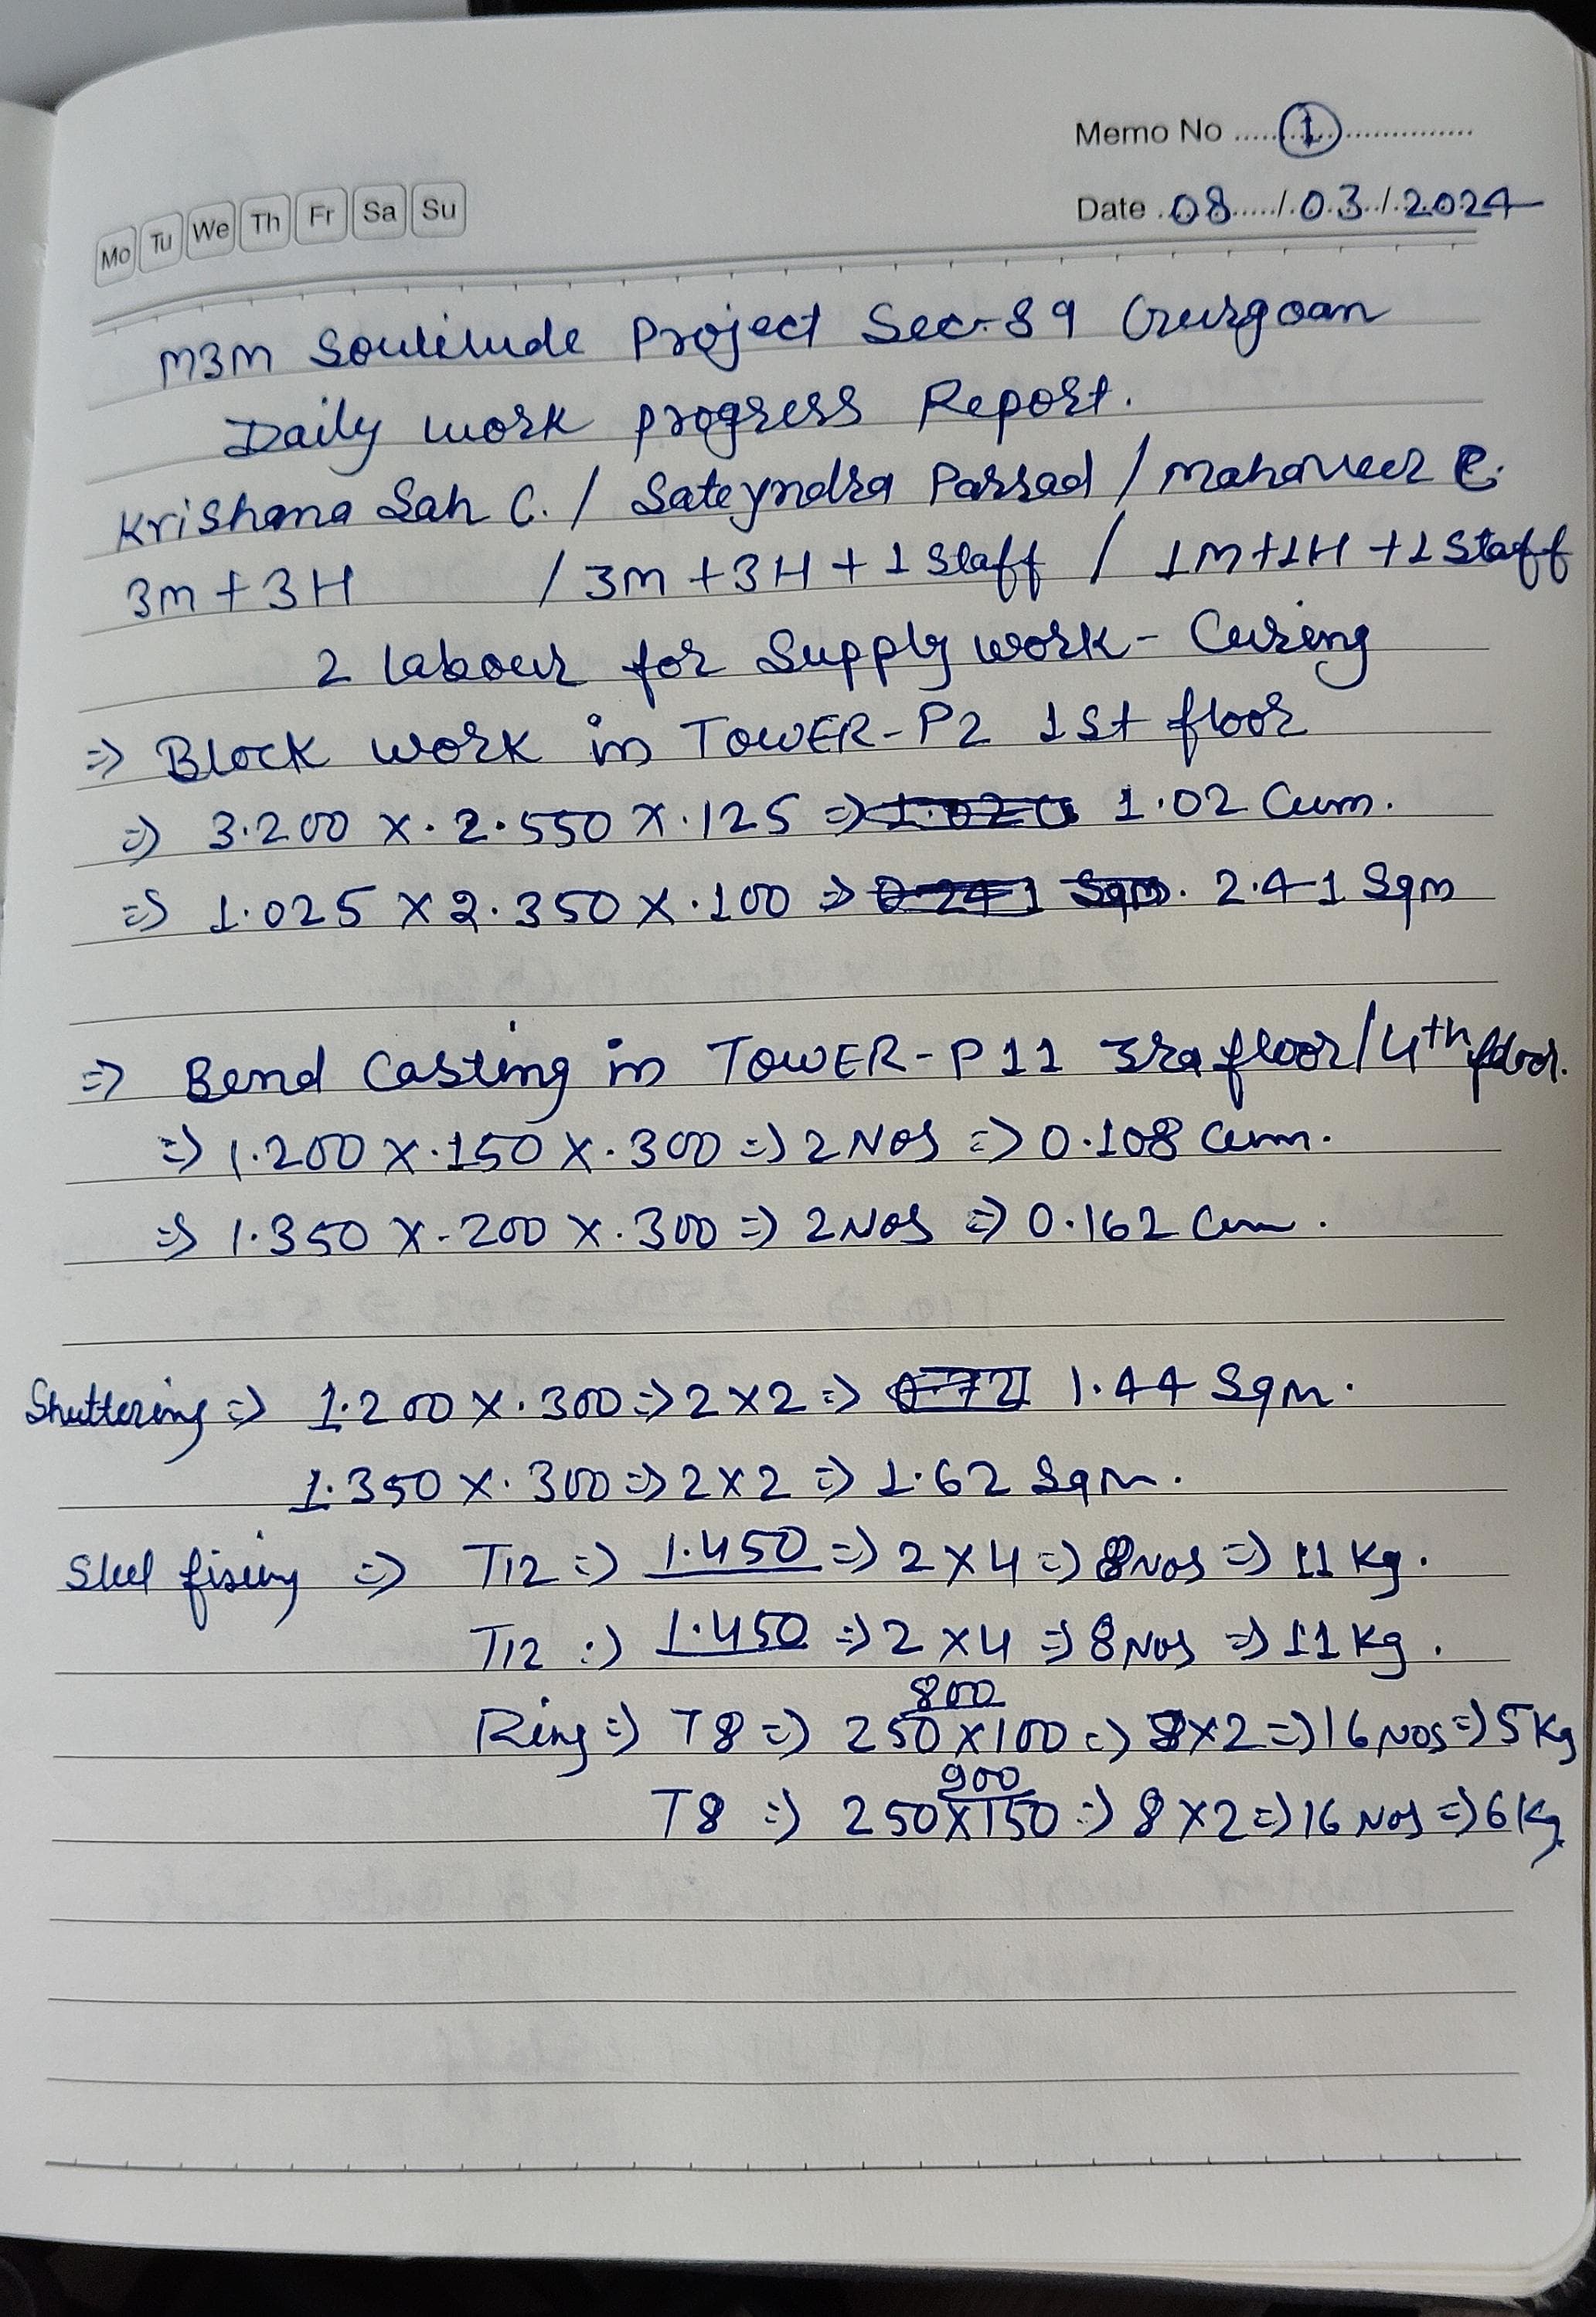 Memo No ..... 1 ..............
Mo Tu We Th Fr Sa Su
Date 08 / 03 / 2024
M3M Soulilude Project Sec-89 Gurgoan
Daily work progress Report.
Krishana Sah C. / Sateyndra Parsad / Mahaveer C.
3m + 3H / 3m + 3H + 1 Staff / 1M+1H +1 Staff
2 labour for Supply work - Curing
=> Block work in TOWER-P2 1st floor
=> 3.200 X .2.550 X .125 => 1.02 Cum.
=> 1.025 X 2.350 X .100 => 2.41 Sqm
=> Bend Casting in TOWER-P11 3rd floor/4th floor.
=> 1.200 X .150 X .300 => 2 Nos => 0.108 Cum.
=> 1.350 X .200 X .300 => 2 Nos => 0.162 Cum.
Shuttering => 1.200 X .300 => 2 X 2 => 1.44 Sqm.
1.350 X .300 => 2 X 2 => 1.62 Sqm.
Steel fixing => T12 => 1.450 => 2 X 4 => 8 Nos => 11 Kg.
T12 => 1.450 => 2 X 4 => 8 Nos => 11 Kg.
800
Ring => T8 => 250 X 100 => 8 X 2 => 16 Nos => 5 Kg
900
T8 => 250 X 150 => 8 X 2 => 16 Nos => 6 Kg